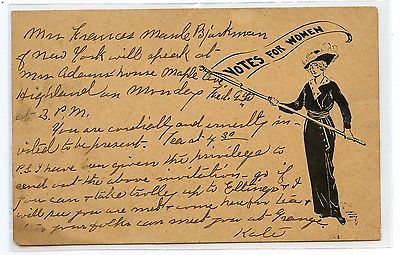 VOTES FOR WOMEN
Mrs Frances Maule Bjorkman
of New York will speak at
Mrs Adams' house Maple Ave
Highland on Monday Feb.
at 3. P.M.
You are cordially and earnestly in-
vited to be present. Tea at 4.30
P.S I have been given the privilege to
send out the above invitation - go if
you can & take trolley up to Elting's & I
will see you are met & come here for tea &
your folks can meet you at Grange
Kate